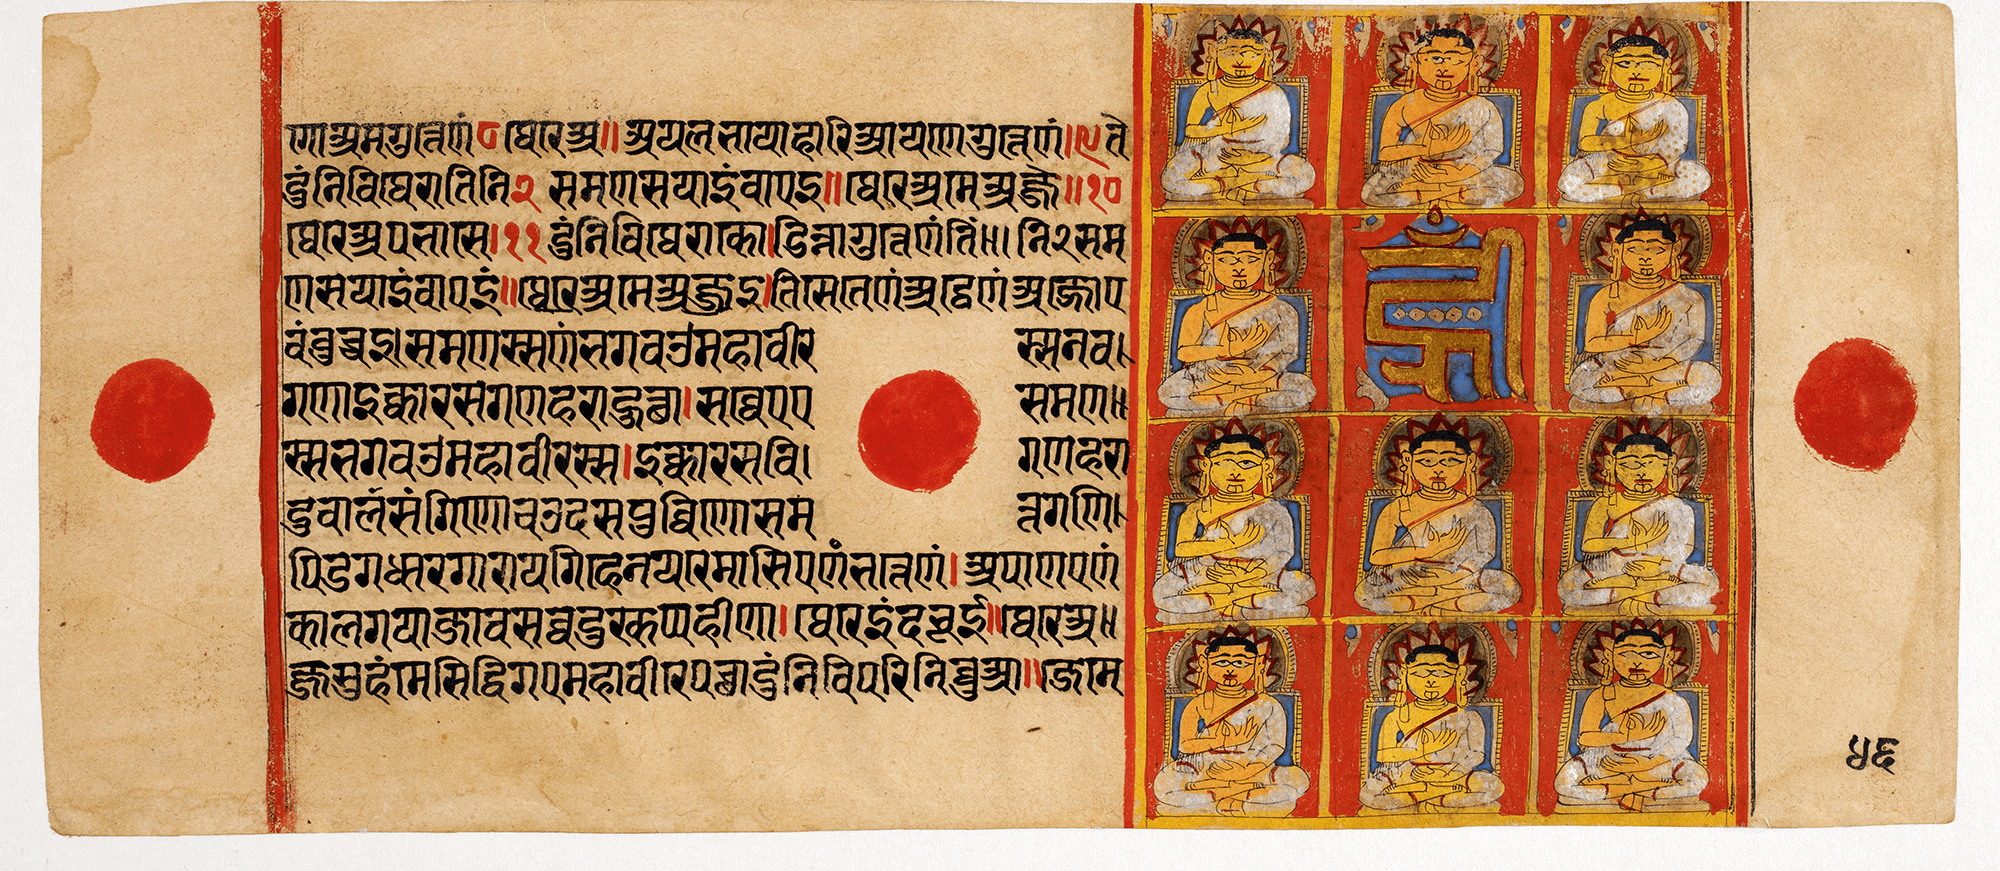 णो अम गुत्तेणं ८ थेरे अ॥ अयलभाया हारिआयणे गुत्तेणं।९ ते
दुंनि वि थेरा तिनि २ समणसयाइं वाएइ॥ थेरे अमेअज्जे॥१०
थेरे अपभासे।११ दुंनि वि थेरा को। डिन्ना गुत्तेणं तिं॥। नि २ सम
णसयाइं वाएइं॥ थेरे अमेअज्जइ। ति से तेणं अट्ठेणं अज्जो ए
वं वुच्चइ। समणस्स णं भगवउ महावीर स्स नव।
गणा इक्कारस गणहरा हुत्था। सव्वे एए समण॥
स्स भगवउ महावीरस्स। इक्कारस वि। गणहरा
दुवालसंगिणो चउदसपुव्विणो सम त्तगणि।
पिडगधारगा रायगिहे नयरे मासिएणं भत्तेणं। अपाणएणं
कालगया जाव सव्वदुक्खप्पहीणा। थेरे इंदभूई॥ थेरे अ॥
ज्जसुहंमे सिद्धिगए महावीरे पच्छा दुंनि वि परिनिव्वुआ॥ जेम
५६